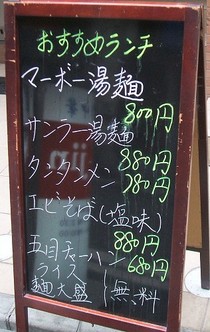 おすすめランチ
マーボー湯麺
800円
サンラー湯麺
880円
タンタンメン
780円
エビそば(塩味)
880円
五目チャーハン
680円
ライス
麺大盛
無料